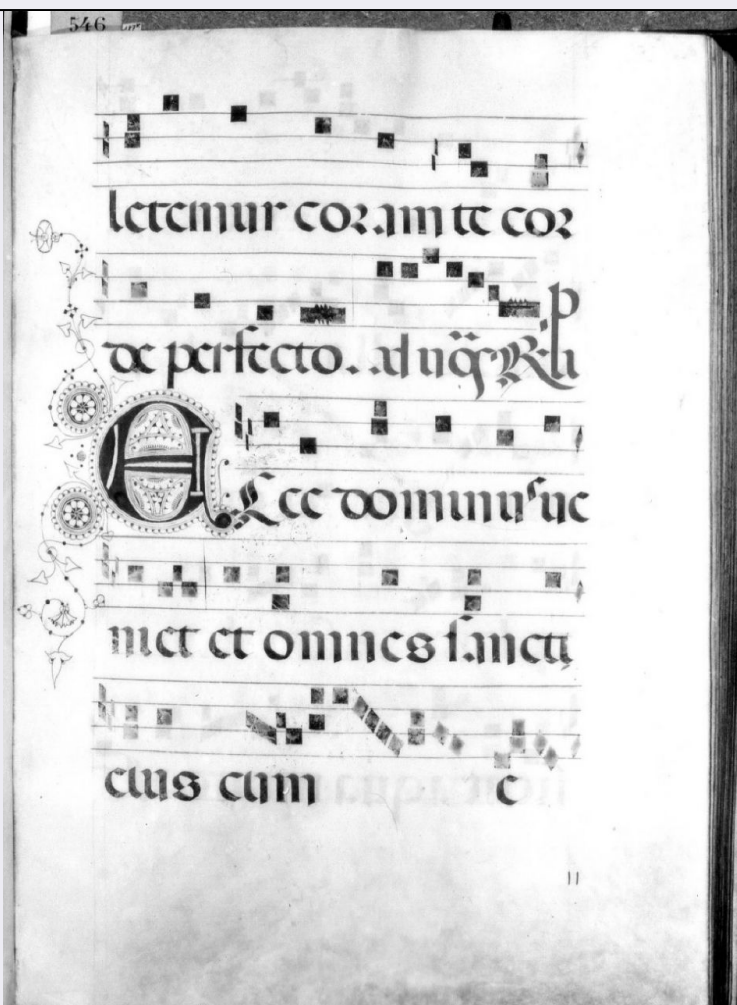 546
letemur coram te cor
de perfecto. ad
Ecce dominus ue
niet et omnes sancti
eius cum e
11